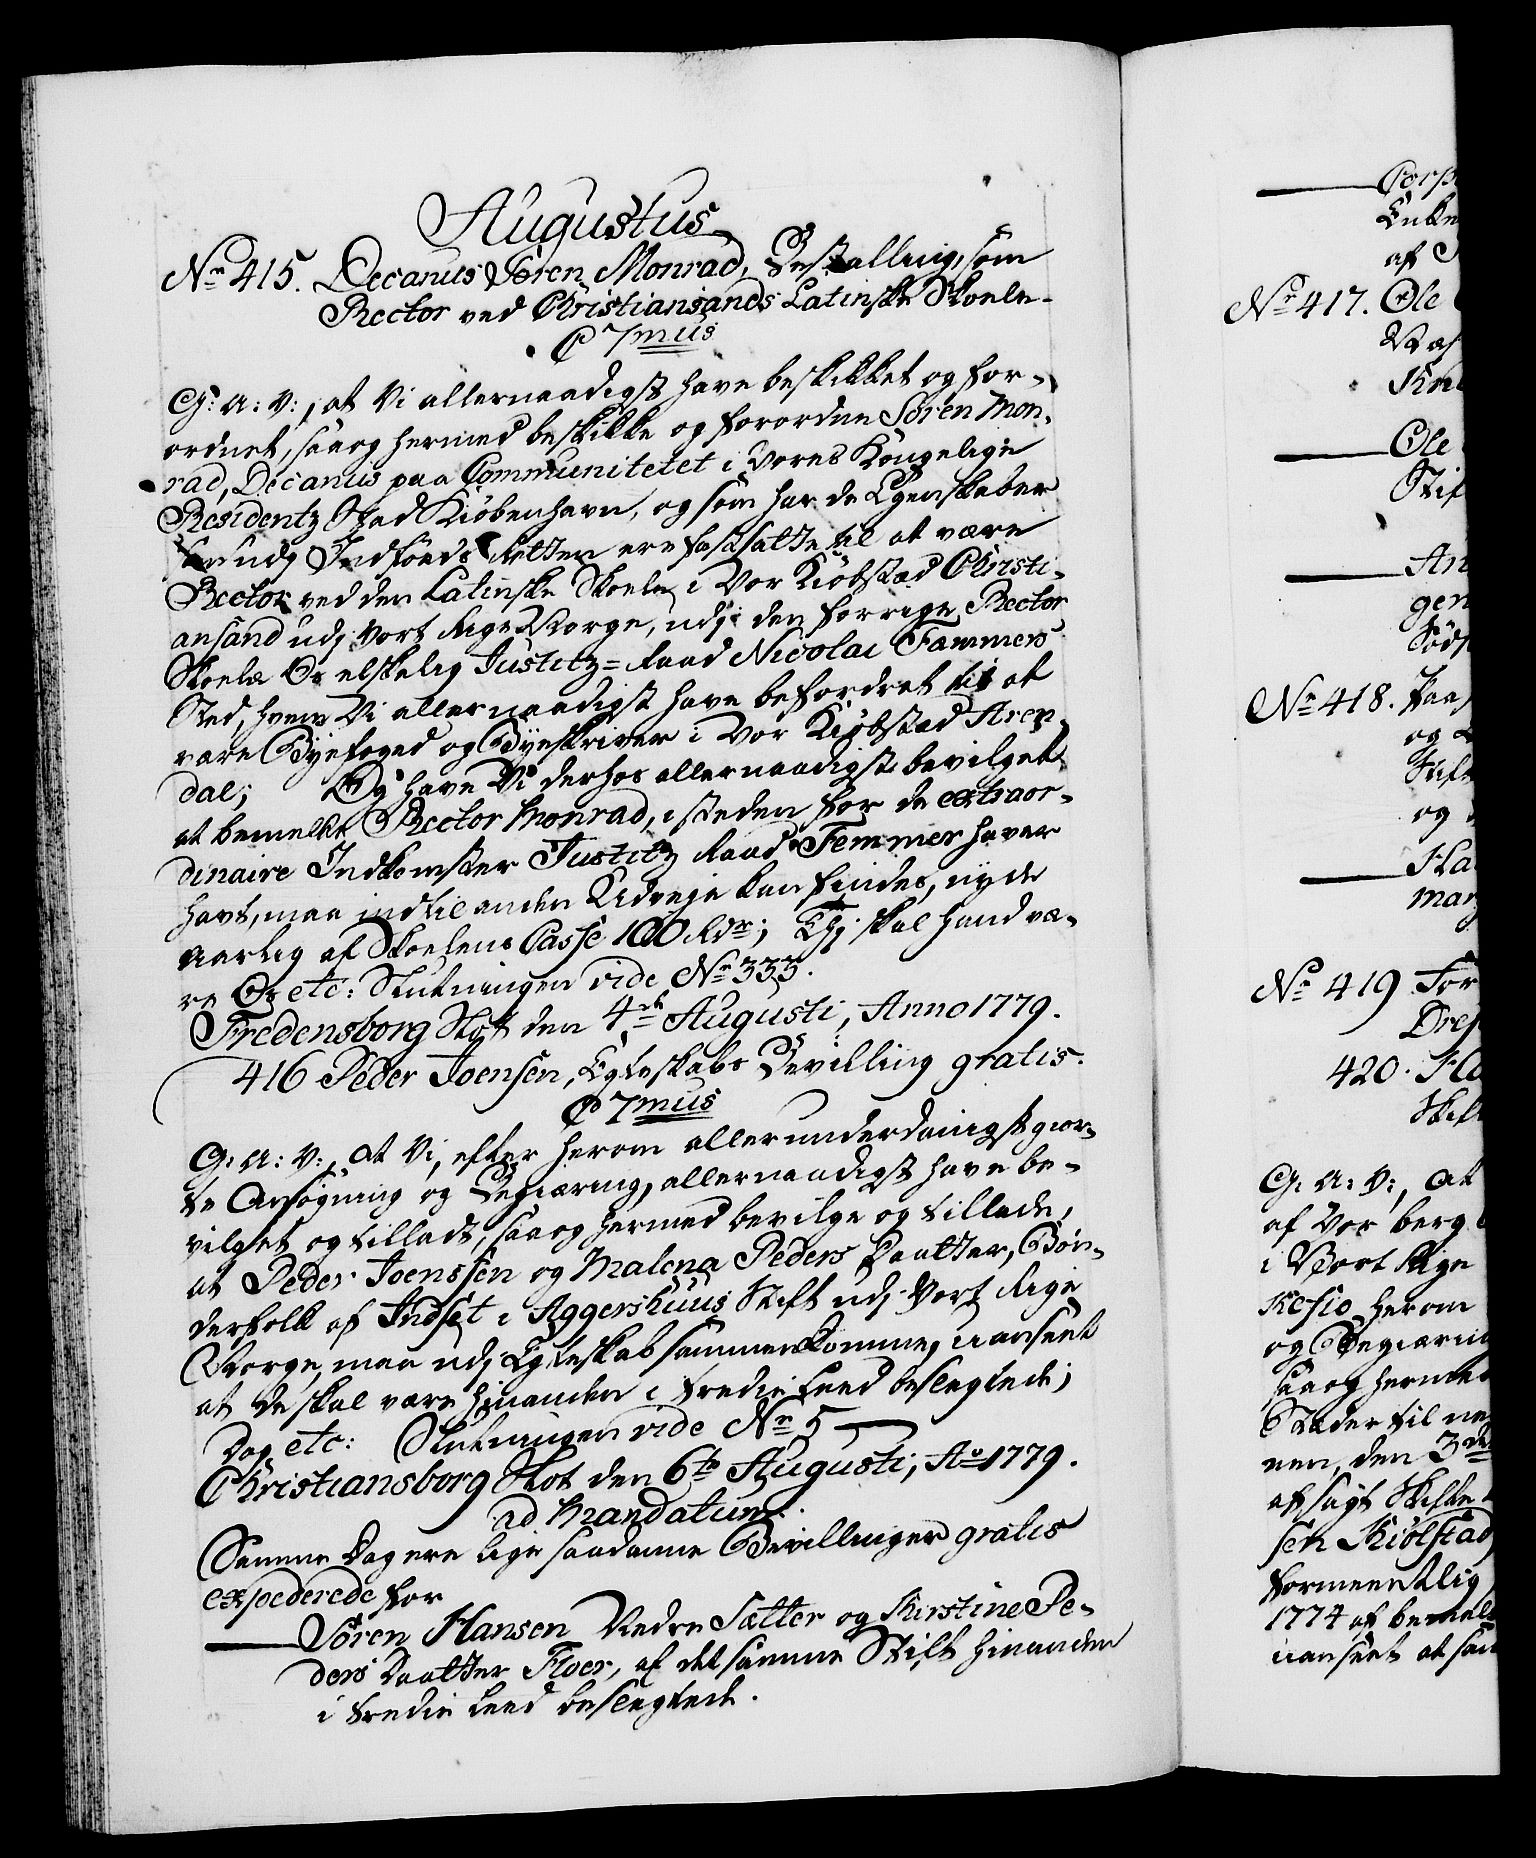 Augustus
No 415. Decanus Sören Monrad, Bestalling, som
Rector ved Christiansands Latinske Skoele.
C 7mus
G: A: V:, at Vi allernaadigst have beskikket og for-
ordnet, saa og hermed beskikke og forordne Sören Mon-
rad, Decanus paa Communitetet i Vores Kongelige
Residentz Stad Kiöbenhavn, og som har de Egenskaber
udj Indföeds Retten ere fastsatte til at være
Rector ved den Latinske Skoele i Vor Kiöbstæd Christi-
ansand udj Vort Rige Norge, udj den forrige Rector
Skoele Os elskelig Justitz-Raad Nicolai Fammers
Sted, hvem Vi allernaadigst have befordret til at
være Byefoged og Byeskriver i Vor Kiöbstæd Aren-
dal; Og have Vi derhos allernaadigst bevilget
at bemelte Rector Monrad, isteden for de extraor-
dinaire Indkomster Justitz Raad Femmer haver
havt, maa indtil anden Udveje kan findes, nyde
aarlig af Skoelens Casse 100 Rdr; Thj skal hand væ-
re Os etc: Slutningen vide No 333.
Fredensborg Slot den 4de Augusti, Anno 1779.
416 Peder Joensen, Egteskabs Bevilling gratis.
C 7mus
G: A: V:, at Vi, efter herom allerunderdanigst gior-
te Ansögning og Begiæring, allernaadigst have be-
vilget og tilladt, saa og hermed bevilge og tillade,
at Peder Joenssen og Malena Peders Daatter, Bön-
derfolk af Indset i Aggershuus Stift udj Vort Rige
Norge, maa udj Egteskab sammenkomme, uanseet
at de skal være hinanden i tredie Leed beslegtede;
Dog etc: Slutningen vide No 5
Christiansborg Slot den 6te Augusti, Ao 1779.
ad Mandatum.
Samme Dag ere lige saadanne Bevillinger gratis
expederede for
Sören Hansen Nedre Sætter og Kirstine Pe-
ders Daatter Floer, af det samme Stift hinanden
i tredie Leed beslegtede.
af
No 417. Ole
Ole
Stif
No 418.
og
og
No 419
420.
G: A: V:, at
af Vor
i Vort Rige
herom
og Begiærin
saa og hermed
den 3de
1774 af
uanseet at